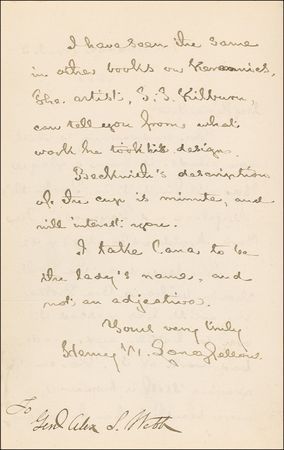 I have seen the same
in other books on Keramics.
The artist, S. S. Kilburn,
can tell you from what
work he took his design.
Beckwith's description
of the cup is minute, and
will interest you.
I take Cana to be
the lady's name, and
not an adjective.
Yours very truly
Henry W. Longfellow
To
Genl Alex S. Webb